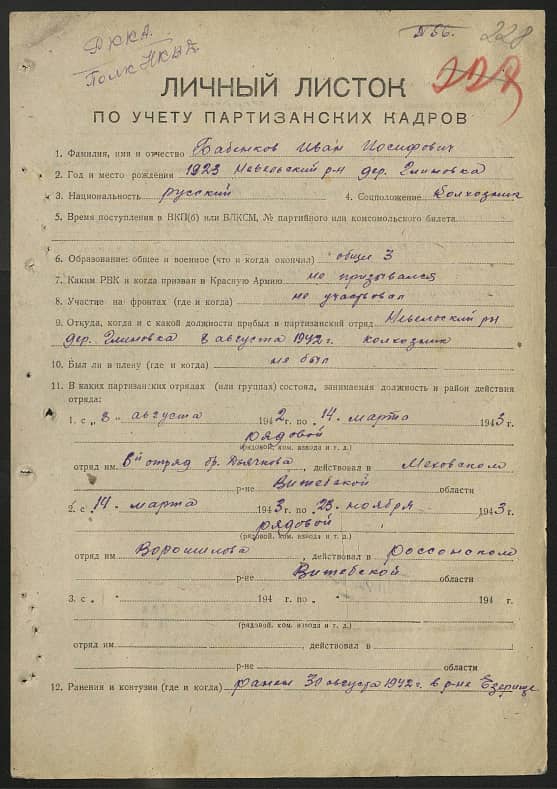 РККА.
Полк НКВД.
N 56.
228
228
ЛИЧНЫЙ ЛИСТОК
ПО УЧЕТУ ПАРТИЗАНСКИХ КАДРОВ
1. Фамилия, имя и отчество Бабенков Иван Иосифович
2. Год и место рождения 1923 Невельский р-н дер. Глимовка
3. Национальность русский 4. Соцположение колхозник
5. Время поступления в ВКП(б) или ВЛКСМ, № партийного или комсомольского билета
6. Образование: общее и военное (что и когда окончил) общее 3
7. Каким РВК и когда призван в Красную Армию не призывался
8. Участие на фронтах (где и когда) не участвовал
9. Откуда, когда и с какой должности прибыл в партизанский отряд Невельский рн
дер. Глимовка 8 августа 1942 г. колхозник
10. Был ли в плену (где и когда) не был
11. В каких партизанских отрядах (или группах) состоял, занимаемая должность и район действия
отряда:
1. с „8 " августа 1942 г. по „14. марта 1943 г.
рядовой
(рядовой, ком. взвода и т. д.)
отряд им. 6й отряд бр. Дьячкова, действовал в Меховском
р-не Витебской области
2. с „14. марта 1943 г. по „23. ноября 1943 г.
рядовой
(рядовой, ком. взвода и т. д.)
отряд им Ворошилова, действовал в россонском
р-не Витебской области
3. с „ " 194 г. по „ " 194 г.
(рядовой, ком. взвода и т. д.)
отряд им. , действовал в
р-не области
12. Ранения и контузии (где и когда) ранен 30 августа 1942 г. в р-не Езерище